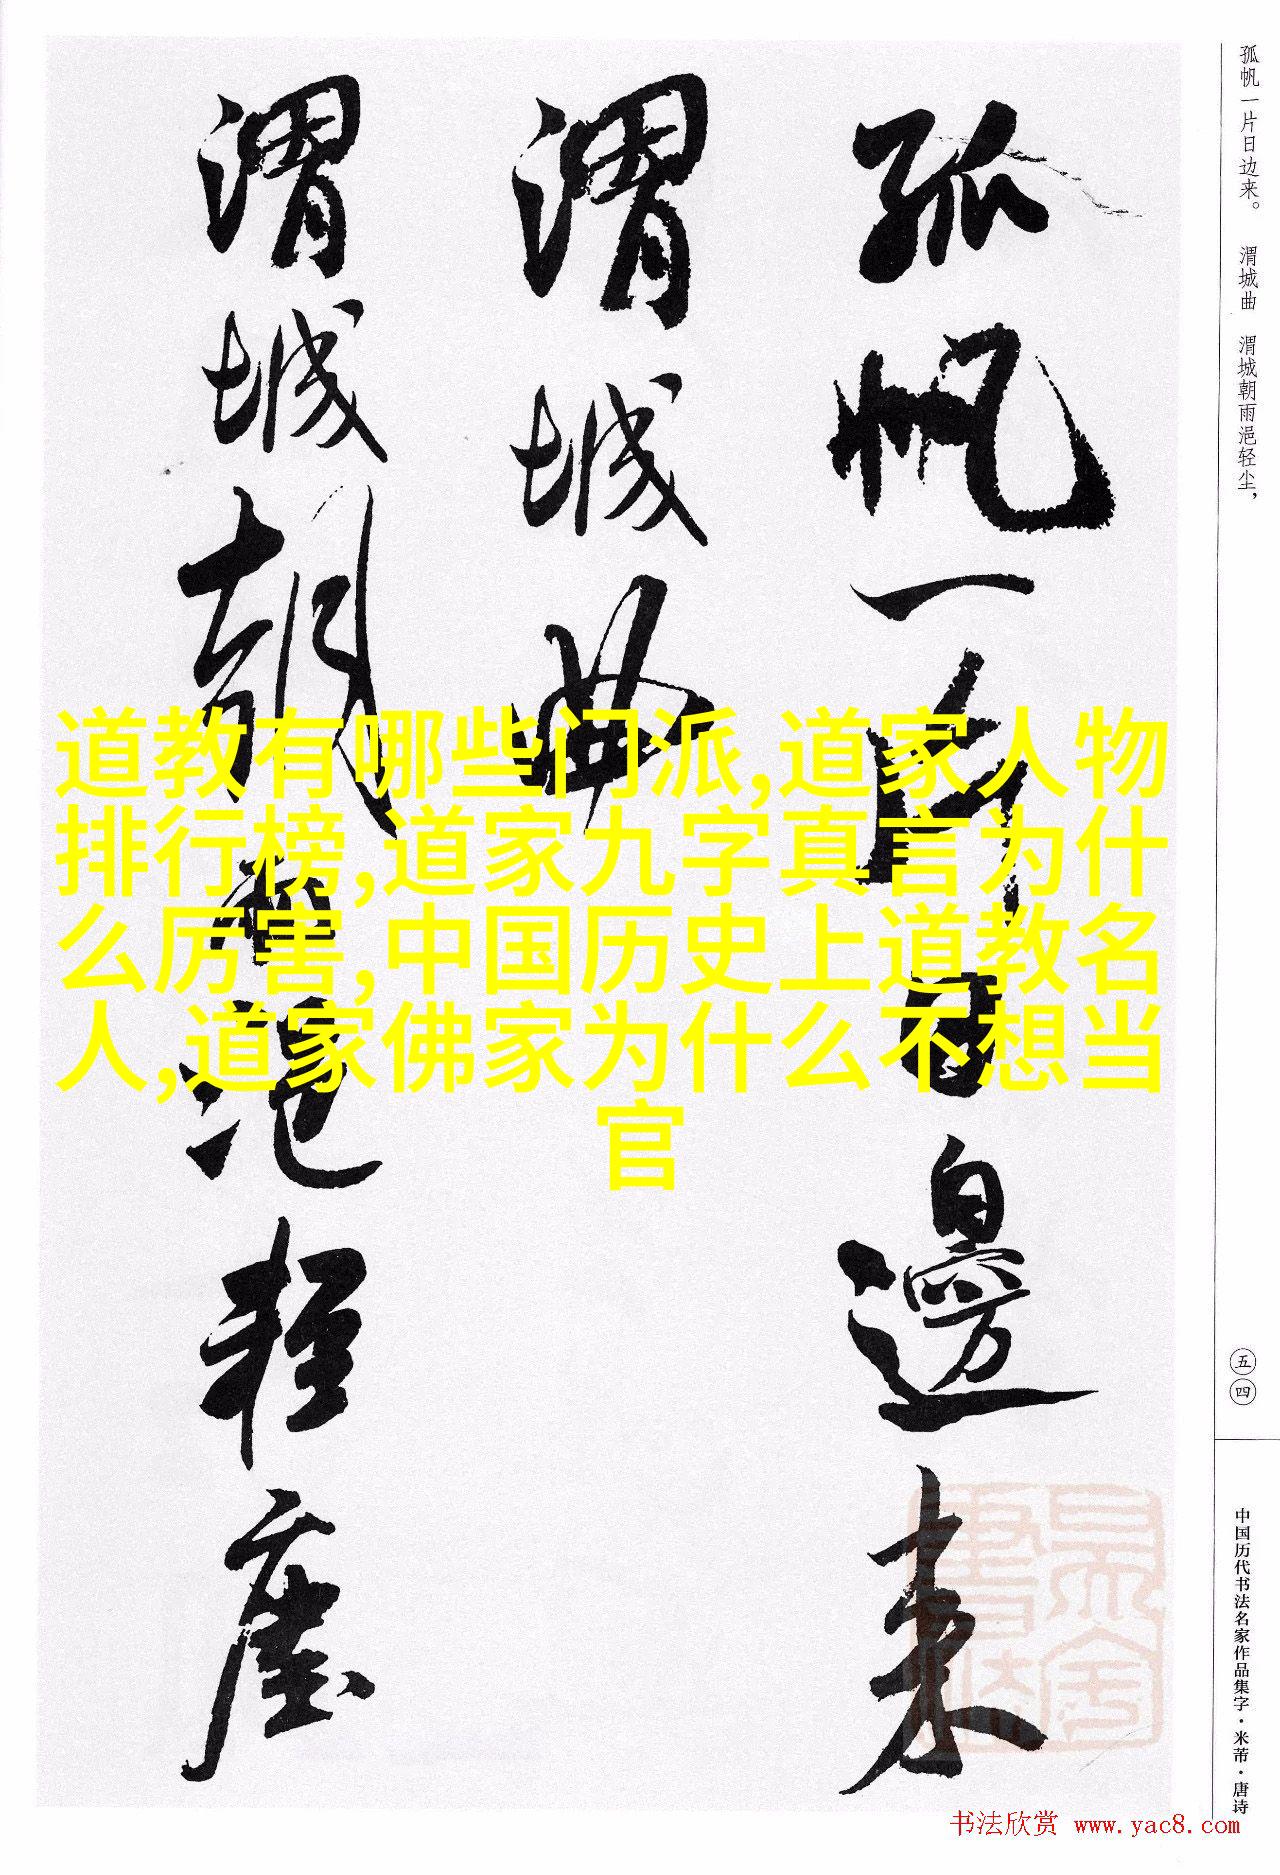 孤帆一片日边来。 渭城曲 渭城朝雨浥轻尘，
孤帆一片日邊来
渭城曲
渭城朝雨浥轻塵
道教有哪些门派,道家人物
排行榜,道家九字真言为什
么厉害,中国历史上道教名
人,道家佛家为什么不想当
官
五四
中国历代书法名家作品集字·米芾·唐诗
书法欣赏 www.yac8.com